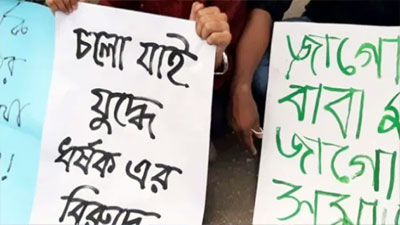 চলো যাই
যুদ্ধে
ধর্ষক এর
বিরুদ্ধে
জাগো
বাবা
জাগো